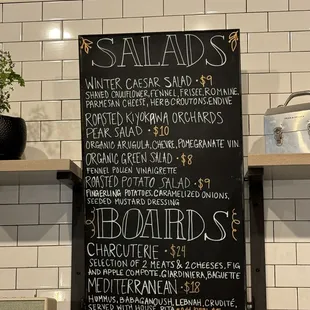 SALADS
WINTER CAESAR SALAD • $9
SHAVED CAULIFLOWER, FENNEL, FRISEE, ROMAINE,
PARMESAN CHEESE, HERB CROUTONS, ENDIVE
ROASTED KIYOKAWA ORCHARDS
PEAR SALAD • $10
ORGANIC ARUGULA, CHEVRE, POMEGRANATE VIN.
ORGANIC GREEN SALAD • $8
FENNEL POLLEN VINAIGRETTE
ROASTED POTATO SALAD • $9
FINGERLING POTATOES, CARAMELIZED ONIONS,
SEEDED MUSTARD DRESSING
BOARDS
CHARCUTERIE • $24
SELECTION OF 2 MEATS & 2 CHEESES, FIG
AND APPLE COMPOTE, GIARDINIERA, BAGUETTE
MEDITERRANEAN • $18
HUMMUS, BABAGANOUSH, LEBNAH, CRUDITÉ,
SERVED WITH HOUSE PITA